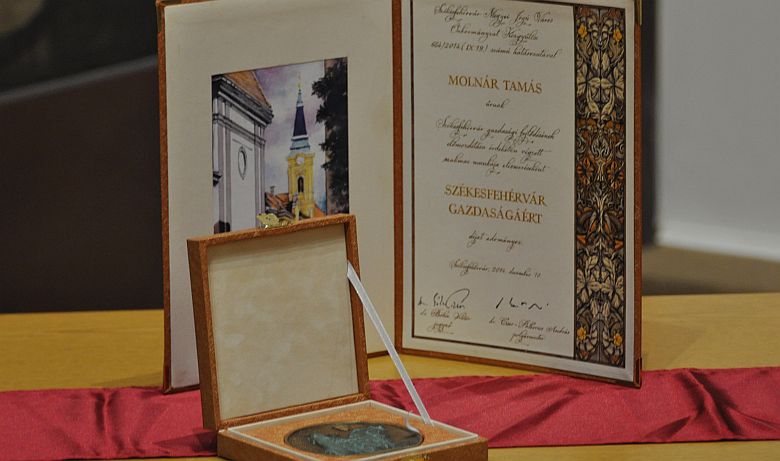 Székesfehérvár Megyei Jogú Város
Önkormányzat Közgyűlése
számú határozatával
MOLNÁR TAMÁS
úrnak
Székesfehérvár gazdasági fejlődésének
előmozdítása érdekében végzett
szakmai munkája elismeréseként
SZÉKESFEHÉRVÁR
GAZDASÁGÁÉRT
díjat adományoz
Székesfehérvár, 2014. december 10.
dr. Cser-Palkovics András
jegyző
polgármester